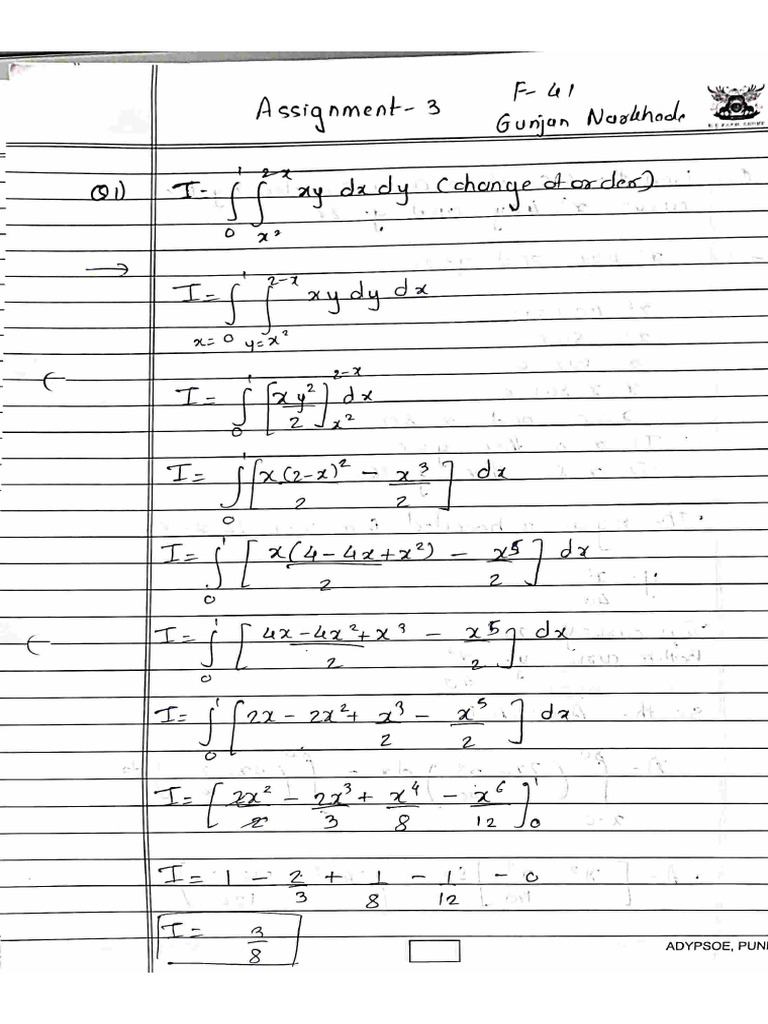 F-41
Assignment-3
Gunjan Narkhode
Q1) I = ∫₀¹ ∫_{x²}^{2-x} xy dx dy (change of order)
→ I = ∫_{x=0}^{1} ∫_{y=x²}^{2-x} xy dy dx
I = ∫₀¹ [xy²/2]_{x²}^{2-x} dx
I = ∫₀¹ [x(2-x)²/2 - x³/2] dx
I = ∫₀¹ [x(4-4x+x²)/2 - x⁵/2] dx
I = ∫₀¹ [4x-4x²+x³/2 - x⁵/2] dx
I = ∫₀¹ [2x - 2x² + x³/2 - x⁵/2] dx
I = [2x²/2 - 2x³/3 + x⁴/8 - x⁶/12]₀¹
I = 1 - 2/3 + 1/8 - 1/12 - 0
I = 3/8
ADYPSOE, PUN